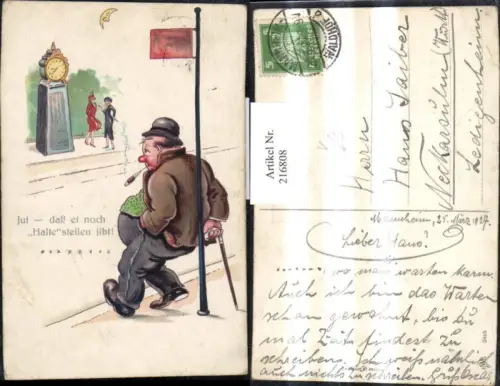 Jut — daß et noch
„Halte"stellen jibt!
Artikel Nr.
216808
5
Herrn
Hans Saiber
Neckarsulm (Württ.)
Ledigenheim
Mannheim, 25. März 1927.
Lieber Hans!
. . . . . . . , wo man warten kann.
Auch ich bin das Warten
schon gewohnt, bis du
mal Zeit findest zu
schreiben. Ich weiß nämlich
auch nichts zu schreiben. Gruß